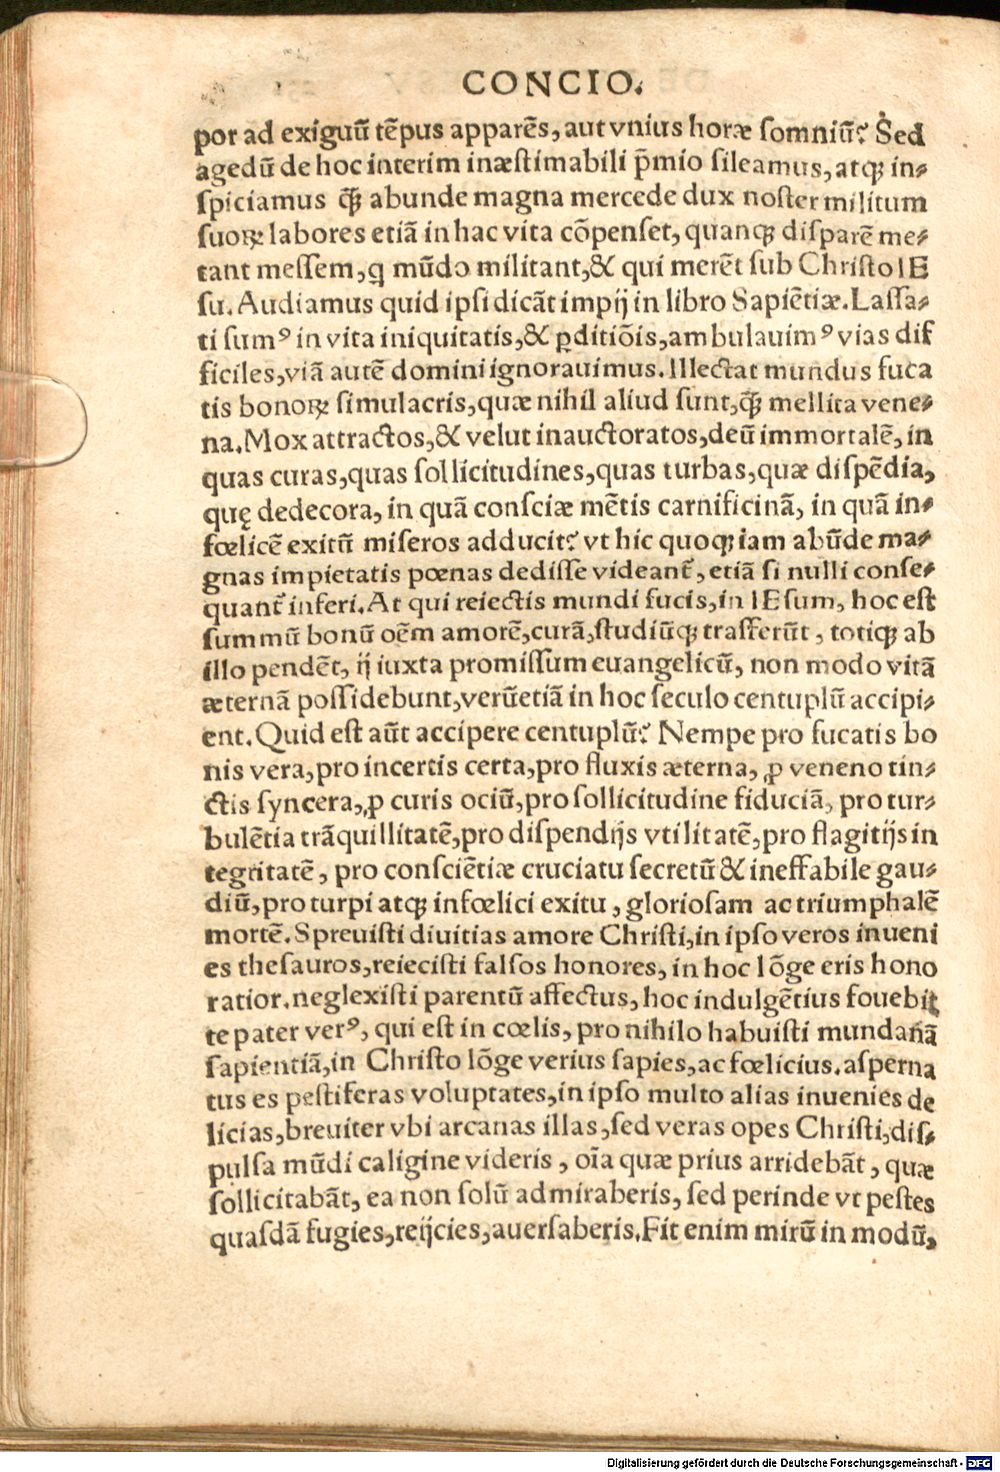 CONCIO.
por ad exiguū tēpus apparēs, aut vnius horæ somniū? Sed
agedū de hoc interim inæstimabili p̄mio sileamus, atq; in-
spiciamus q̄; abunde magna mercede dux noster militum
suoꝝ labores etiā in hac vita cōpenset, quanq; disparē me-
tant messem, ꝗ mūdo militant, & qui merēt sub Christo IE
su. Audiamus quid ipsi dicāt impij in libro Sapiētiæ. Lassa-
ti sumꝰ in vita iniquitatis, & ꝑditiōis, ambulauimꝰ vias dif
ficiles, viā autē domini ignorauimus. Illectat mundus fuca
tis bonoꝝ simulacris, quæ nihil aliud sunt, q̄; mellita vene-
na. Mox attractos, & velut inauctoratos, deū immortalē, in
quas curas, quas sollicitudines, quas turbas, quæ dispēdia,
quę dedecora, in quā consciæ mētis carnificinā, in quā in-
fœlicē exitū miseros adducit? vt hic quoq; iam abūde ma-
gnas impietatis pœnas dedisse videant̃, etiā si nulli conse-
quant̃ inferi. At qui reiectis mundi fucis, in IEsum, hoc est
summū bonū oēm amorē, curā, studiūq; trāsferūt, totiq; ab
illo pendēt, ij iuxta promissum euangelicū, non modo vitā
æternā possidebunt, verūetiā in hoc seculo centuplū accipi-
ent. Quid est aūt accipere centuplū? Nempe pro fucatis bo
nis vera, pro incertis certa, pro fluxis æterna, ꝓ veneno tin-
ctis syncera, ꝓ curis ociū, pro sollicitudine fiduciā, pro tur-
bulētia trāquillitatē, pro dispendijs vtilitatē, pro flagitijs in
tegritatē, pro consciētiæ cruciatu secretū & ineffabile gau-
diū, pro turpi atq; infœlici exitu, gloriosam ac triumphalē
mortē. Spreuisti diuitias amore Christi, in ipso veros inueni
es thesauros, reiecisti falsos honores, in hoc lōge eris hono
ratior. neglexisti parentū affectus, hoc indulgētius fouebit
te pater verꝰ, qui est in cœlis, pro nihilo habuisti mundanā
sapientiā, in Christo lōge verius sapies, ac fœlicius. asperna
tus es pestiferas voluptates, in ipso multo alias inuenies de
licias, breuiter vbi arcanas illas, sed veras opes Christi, dis-
pulsa mūdi caligine videris, oīa quæ prius arridebāt, quæ
sollicitabāt, ea non solū admiraberis, sed perinde vt pestes
quasdā fugies, reijcies, auersaberis. Fit enim mirū in modū,
Digitalisierung gefördert durch die Deutsche Forschungsgemeinschaft - DFG